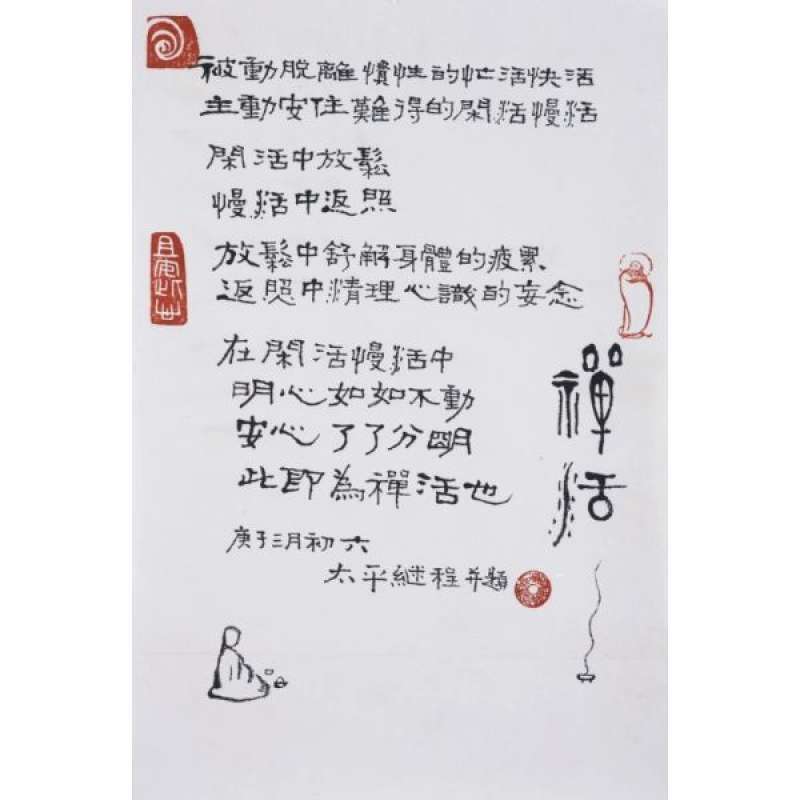 被動脫離慣性的忙活快活
主動安住難得的閑活慢活
閑活中放鬆
慢活中返照
放鬆中舒解身體的疲累
返照中清理心識的妄念
在閑活慢活中
明心如如不動
安心了了分明
此即為禪活也
庚子三月初六
太平繼程并題
禪活